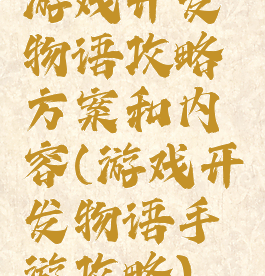 游戏开发
物语攻略
方案和内
容(游戏开
发物语手
游攻略)